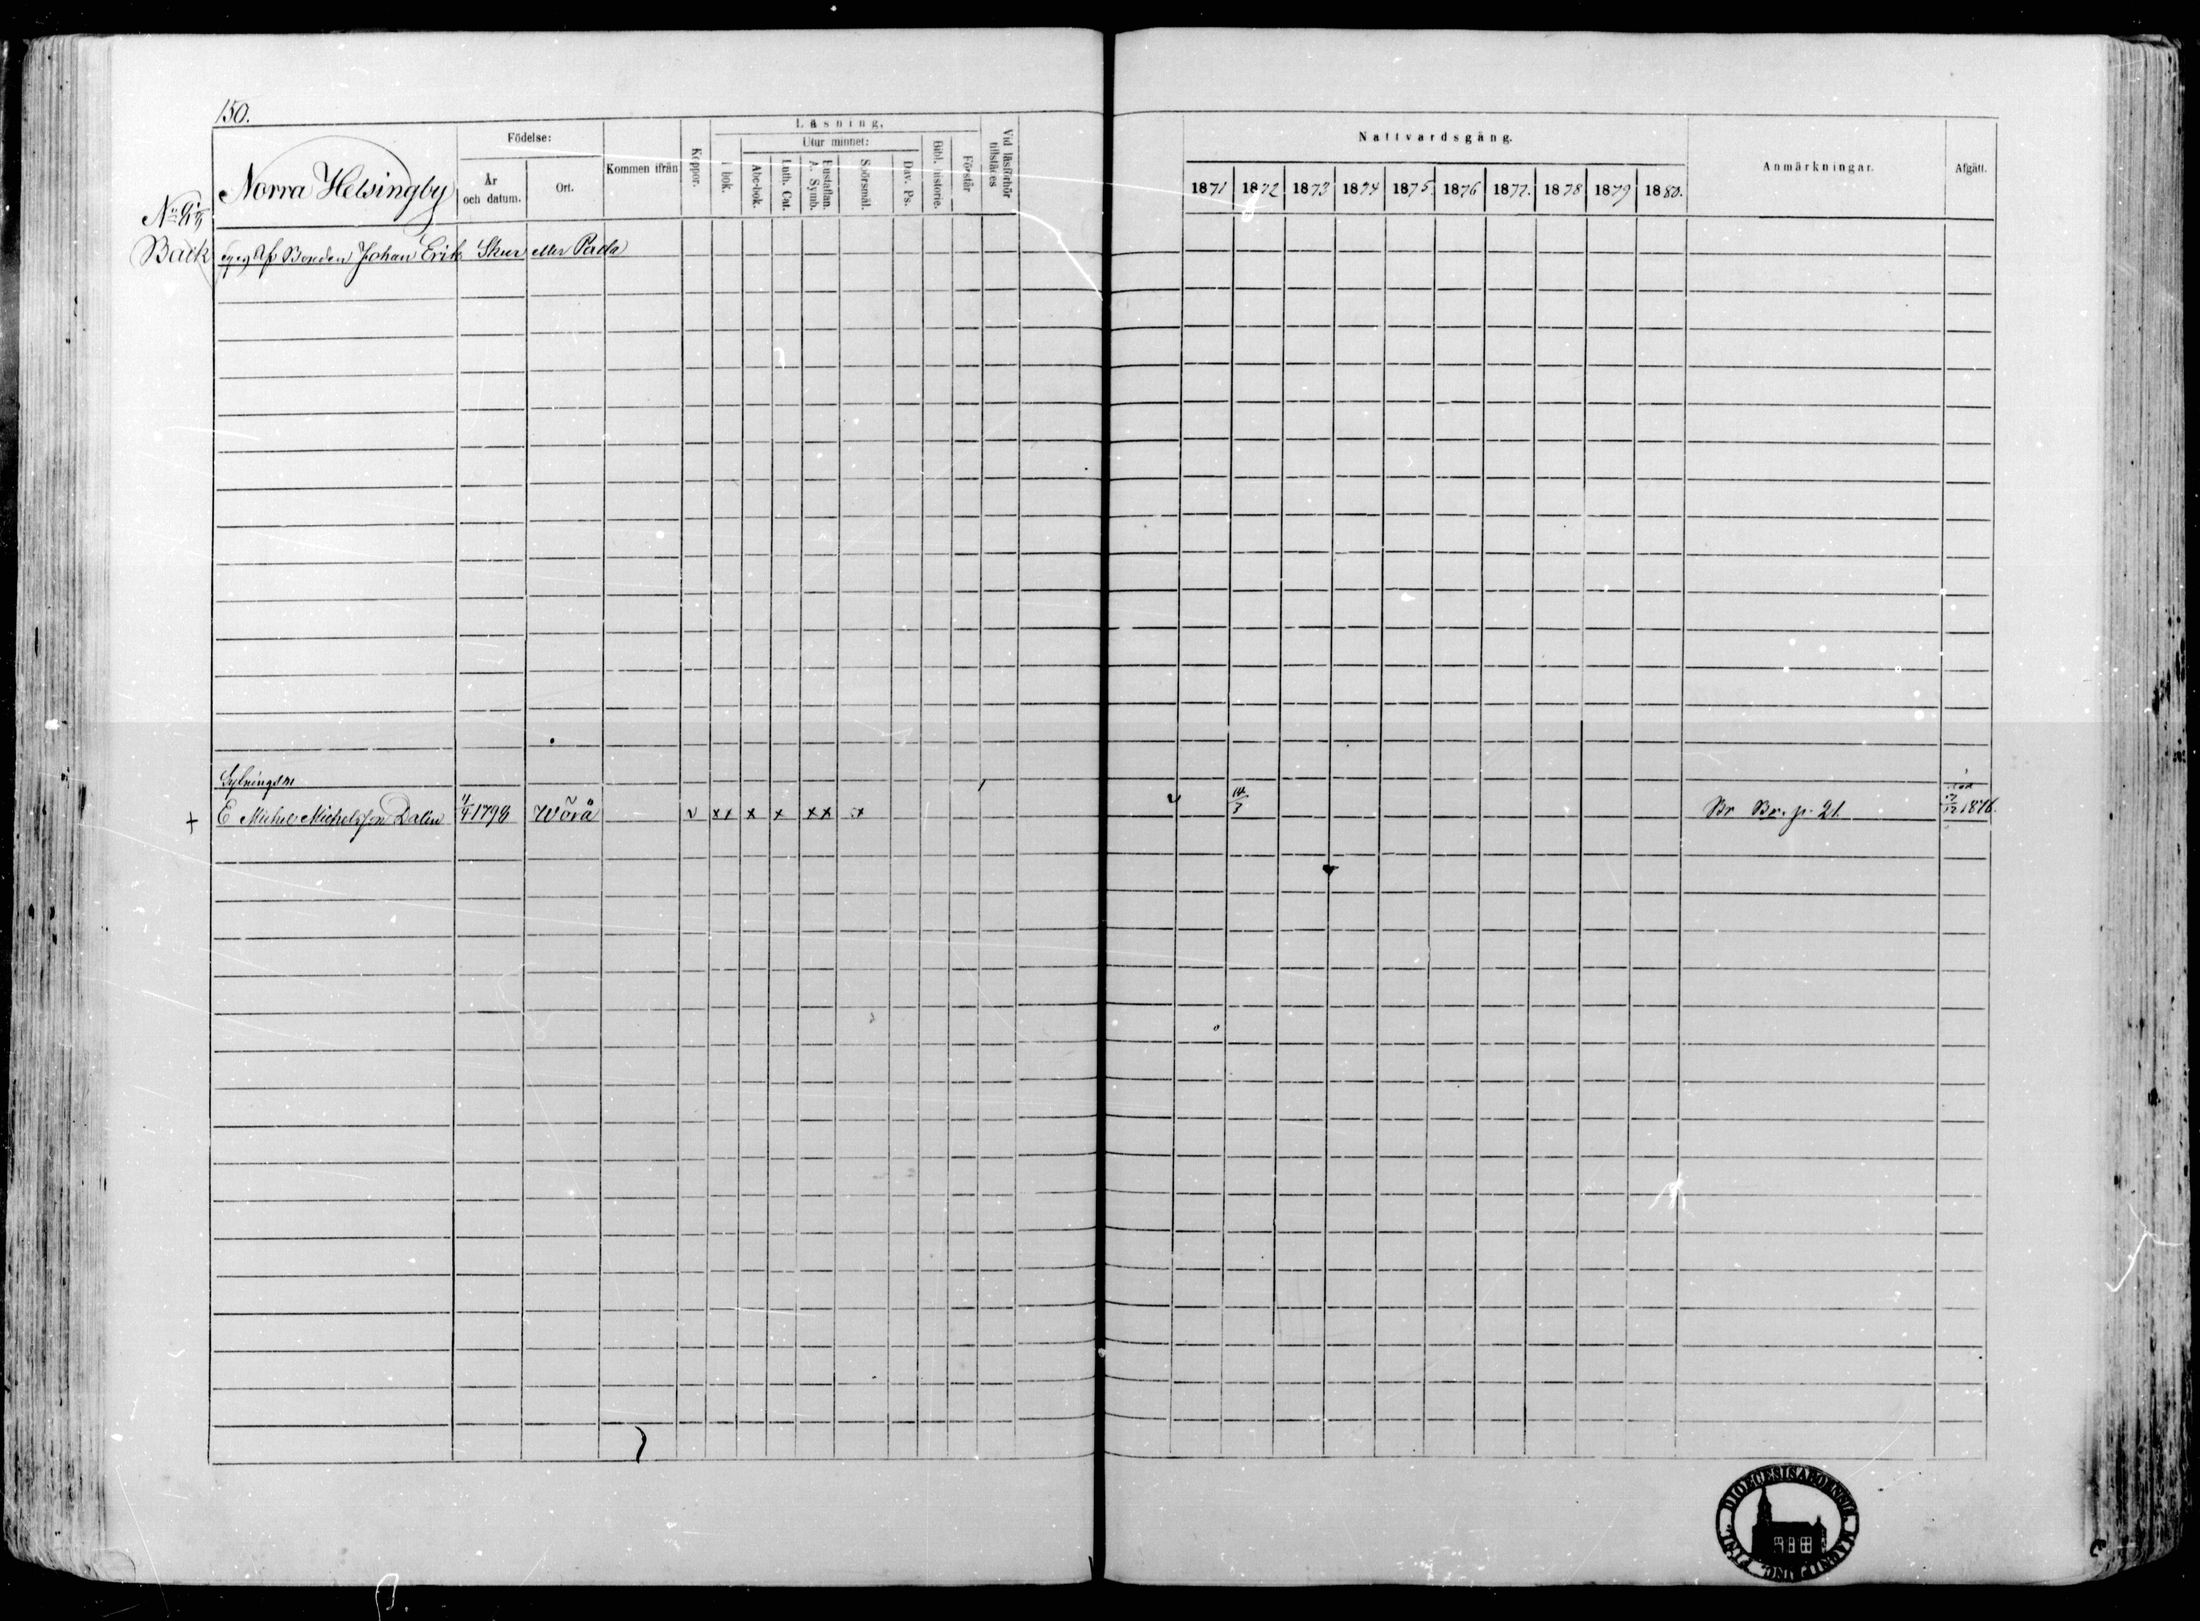 150.
Norra Helsingby
Födelse:
År och datum.
Ort.
Kommen ifrån
Koppor.
Läsning.
I bok.
Utur minnet:
Abc-bok.
Luth. Cat.
Hustaflan. A. Symb.
Spörsmål.
Dav. Ps.
Bibl. historie.
Förstår
Vid läsförhör tillstädes
Nattvardsgång.
1871 1872 1873 1874 1875. 1876 1877. 1878 1879 1880.
Anmärkningar.
Afgått.
Back
eges Af Bonden Johan Erik Skur eller Perda
Sytningsm
+ E Michel Michelsson Dalin 4/4 1798 Wörå v xx x x xx x 10/3 Br Br. p. 21. död 1876.
DIOECESIS ABOENSIS